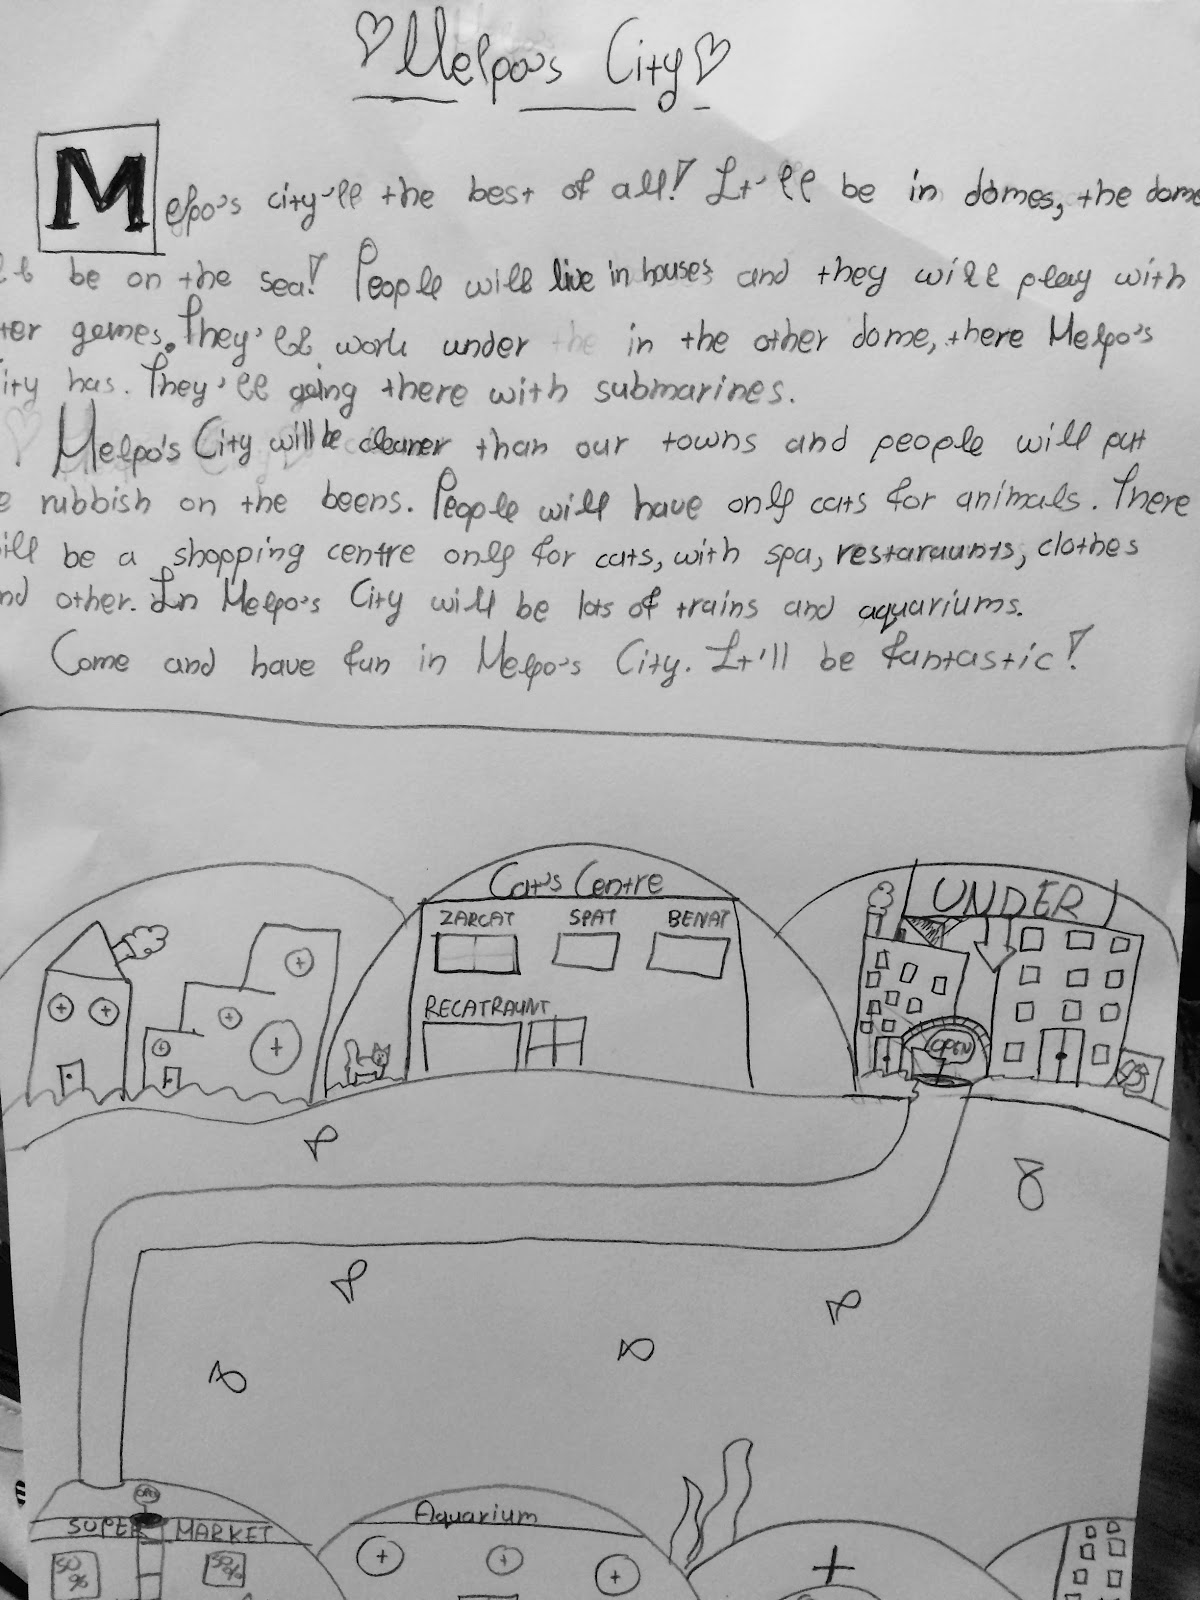 Melpo's City
Melpo's city'll the best of all! It'll be in domes, the dome
be on the sea! People will live in houses and they will play with
games. They'll work under the in the other dome, there Melpo's
has. They'll going there with submarines.
Melpo's City will be cleaner than our towns and people will put
rubbish on the beens. People will have only cats for animals. There
be a shopping centre only for cats, with spa, restaraunts, clothes
other. In Melpo's City will be lots of trains and aquariums.
Come and have fun in Melpo's City. It'll be fantastic!
Cat's Centre
UNDER
ZARCAT SPAT BENAT
RECATRAUNT
OPEN
Aquarium
SUPER MARKET
50% 50%